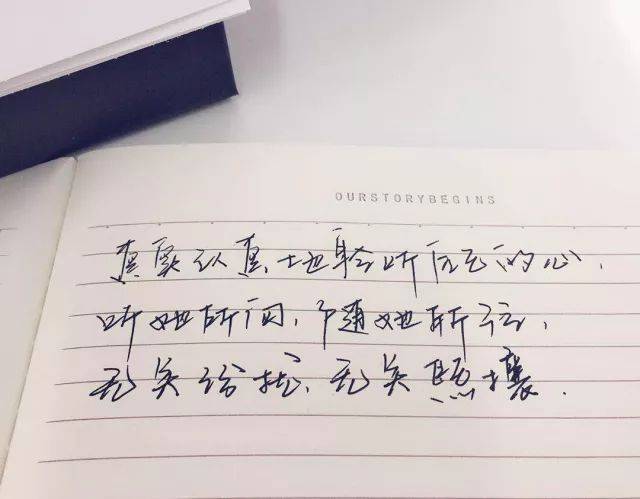 OURSTORYBEGINS
认真地聆听自己的心,
听她所闻,她所
无关纷扰,无关熙攘.